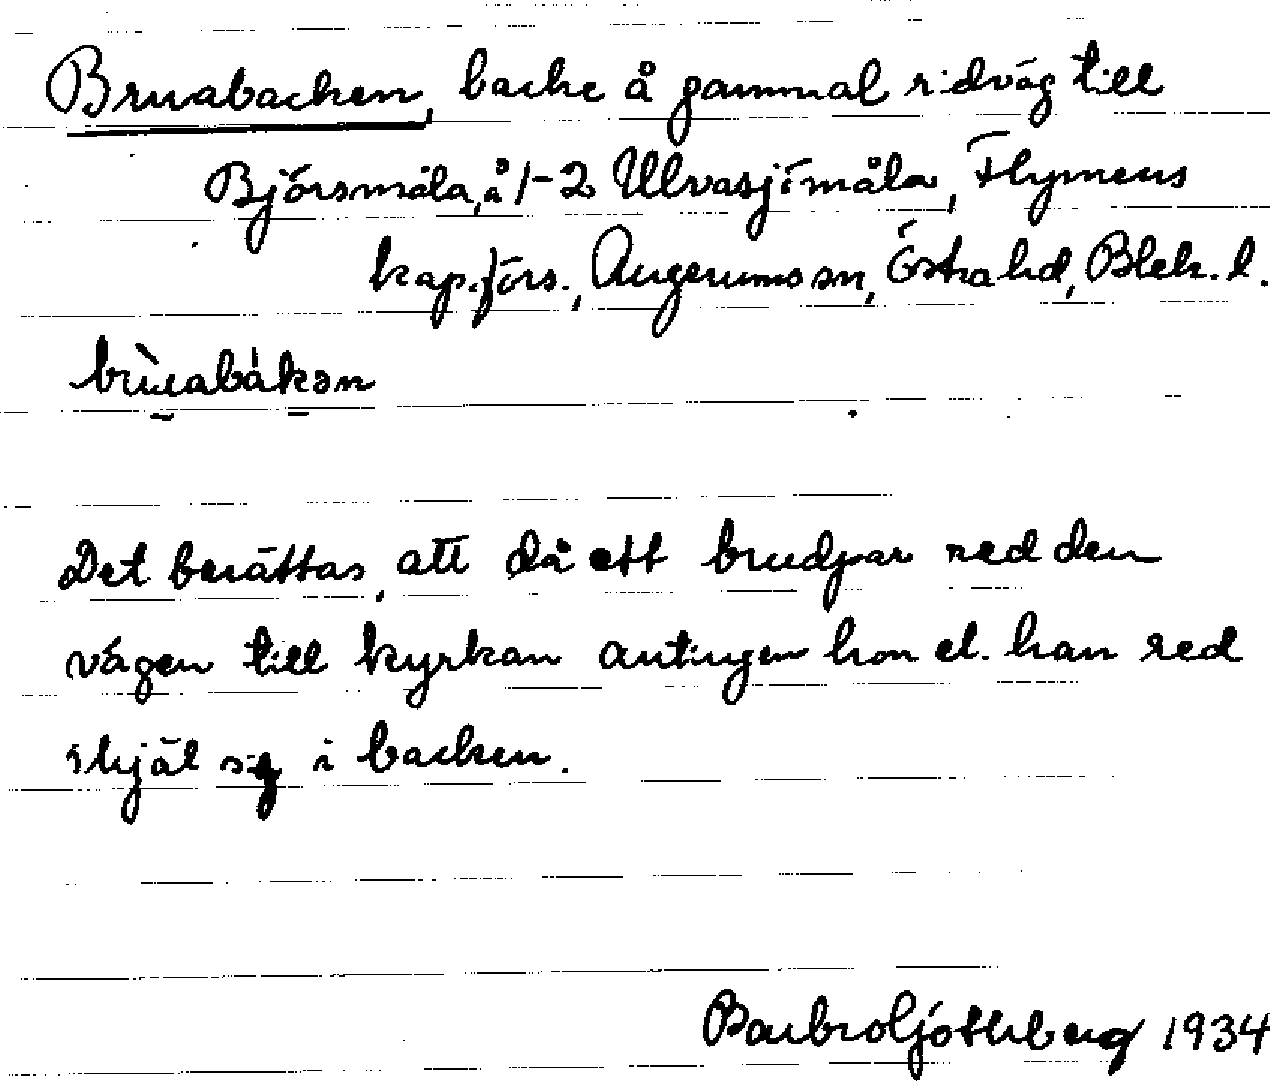 Bruabacken, backe å gammal ridväg till
Björsmåla, å 1-2 Ulvasjömåla, Flymens
kap.förs., Augerums sn, Östra hd, Blek. l.
brùabákən
Det berättas, att då ett brudpar red den
vägen till kyrkan antingen hon el. han red
ihjäl sig i backen.
1934